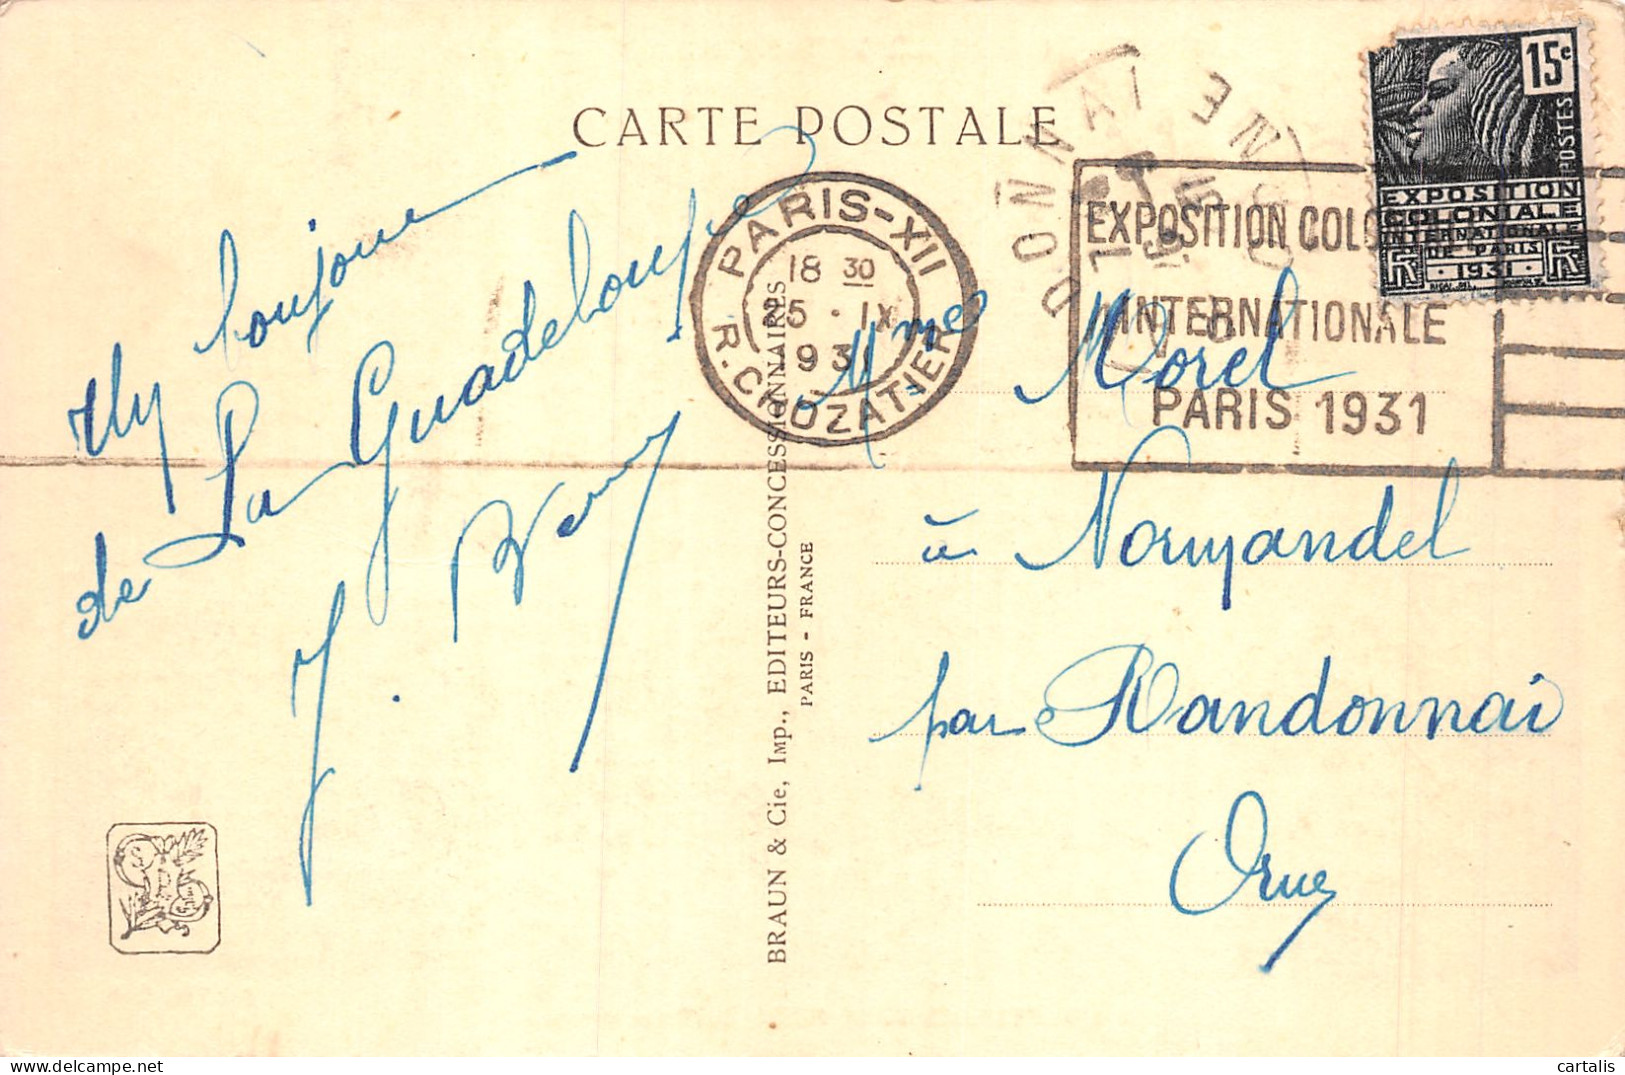 CARTE POSTALE
bonjour
de La Guadeloupe
J.
BRAUN & Cie, Imp., EDITEURS-CONCESSIONNAIRES
PARIS - FRANCE
PARIS-XII
18 30
5 · IX
R. CROZATIER
EXPOSITION COLO
INTERNATIONALE
PARIS 1931
15c
POSTES
EXPOSITION
COLONIALE
INTERNATIONALE
DE PARIS
RF · 1931 · RF
Mme Morel
à Normandel
par Randonnai
Orne
cartalis